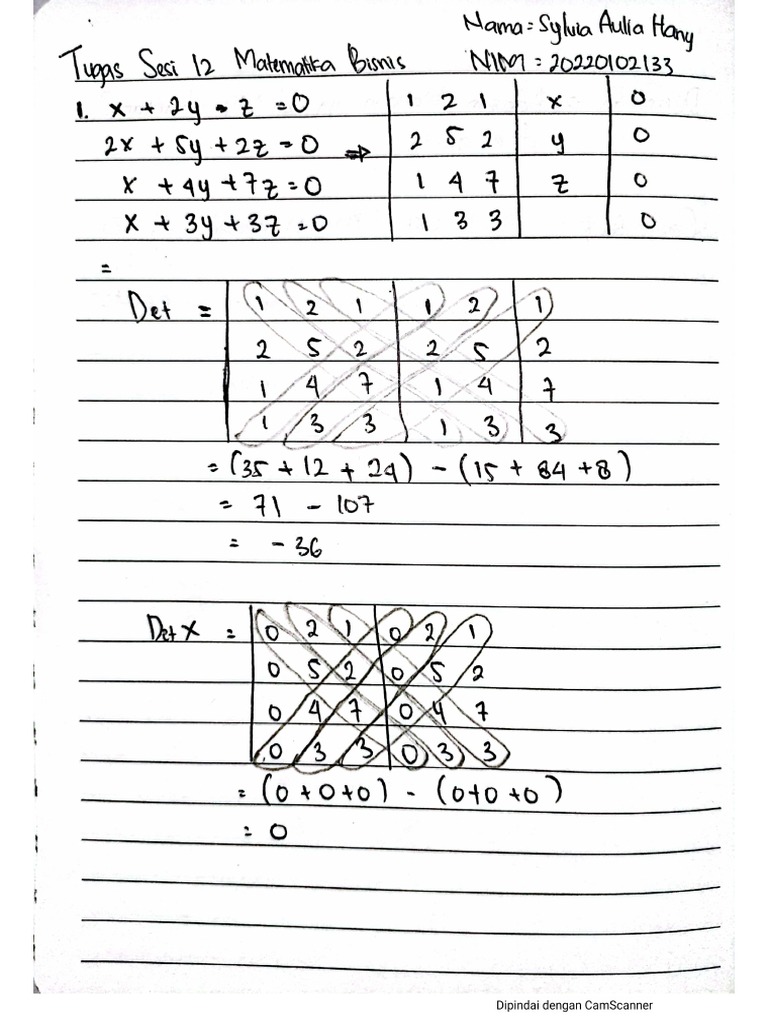 Nama = Sylvia Aulia Hany
Tugas Sesi 12 Matematika Bisnis NIM = 20220102133
1. x + 2y - z = 0 | 1 2 1 | x | 0
2x + 5y + 2z = 0 => | 2 5 2 | y | 0
x + 4y + 7z = 0 | 1 4 7 | z | 0
x + 3y + 3z = 0 | 1 3 3 | | 0
=
Det = | 1 2 1 | 1 2 | 1
2 5 2 | 2 5 | 2
1 4 7 | 1 4 | 7
1 3 3 | 1 3 | 3
= (35 + 12 + 24) - (15 + 84 + 8)
= 71 - 107
= - 36
Det X = | 0 2 1 | 0 2 1
0 5 2 | 0 5 2
0 4 7 | 0 4 7
0 3 3 | 0 3 3
= (0 + 0 + 0) - (0 + 0 + 0)
= 0
Dipindai dengan CamScanner